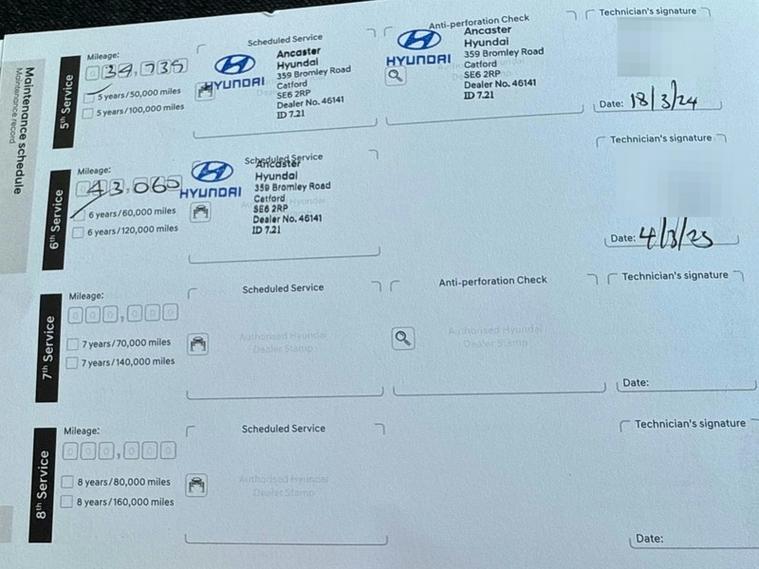 Maintenance schedule
Maintenance record
5th Service
Mileage:
34,735
5 years/50,000 miles
5 years/100,000 miles
Scheduled Service
HYUNDAI
Ancaster
Hyundai
359 Bromley Road
Catford
SE6 2RP
Dealer No. 46141
ID 7.21
Anti-perforation Check
HYUNDAI
Ancaster
Hyundai
359 Bromley Road
Catford
SE6 2RP
Dealer No. 46141
ID 7.21
Technician's signature
Date: 18/3/24
6th Service
Mileage:
43,060
6 years/60,000 miles
6 years/120,000 miles
Scheduled Service
HYUNDAI
Ancaster
Hyundai
359 Bromley Road
Catford
SE6 2RP
Dealer No. 46141
ID 7.21
Technician's signature
Date: 4/3/25
7th Service
Mileage:
000,000
7 years/70,000 miles
7 years/140,000 miles
Scheduled Service
Authorised Hyundai
Dealer Stamp
Anti-perforation Check
Authorised Hyundai
Dealer Stamp
Technician's signature
Date:
8th Service
Mileage:
000,000
8 years/80,000 miles
8 years/160,000 miles
Scheduled Service
Authorised Hyundai
Dealer Stamp
Technician's signature
Date: